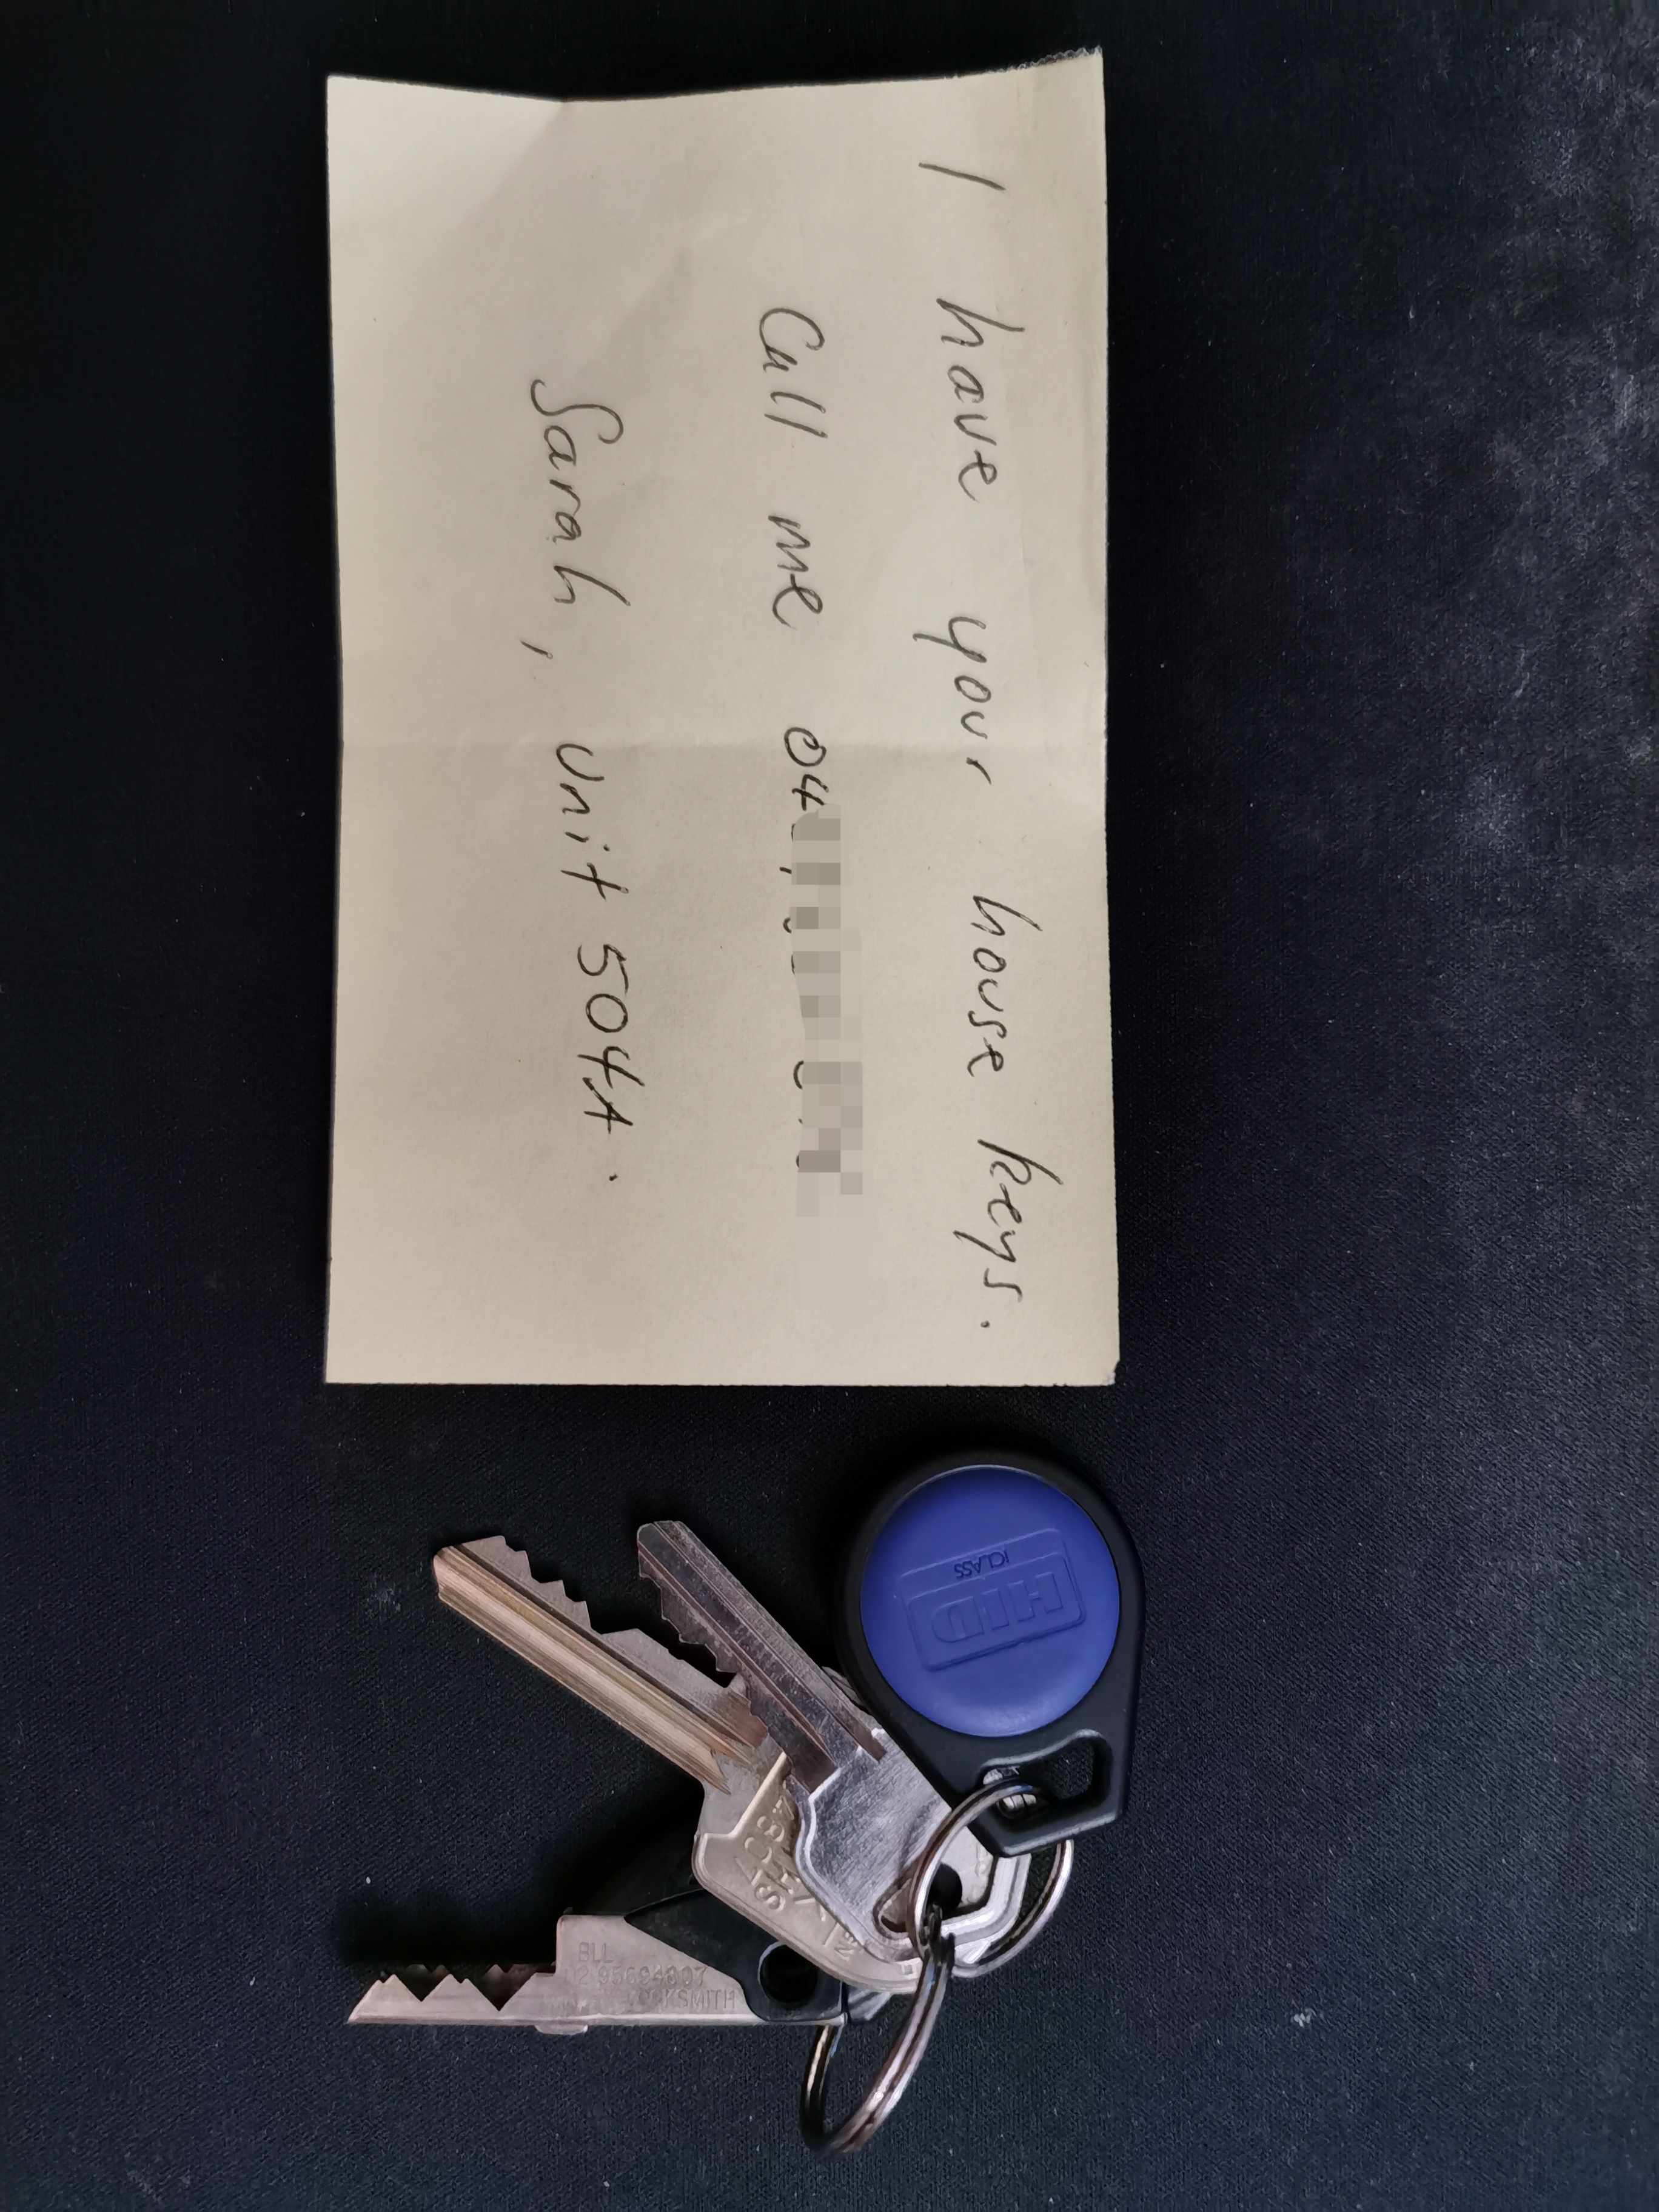 I have your house keys.
Call me 04
Sarah, Unit 504A.
HID
iCLASS
BLL
LOCKSMITH